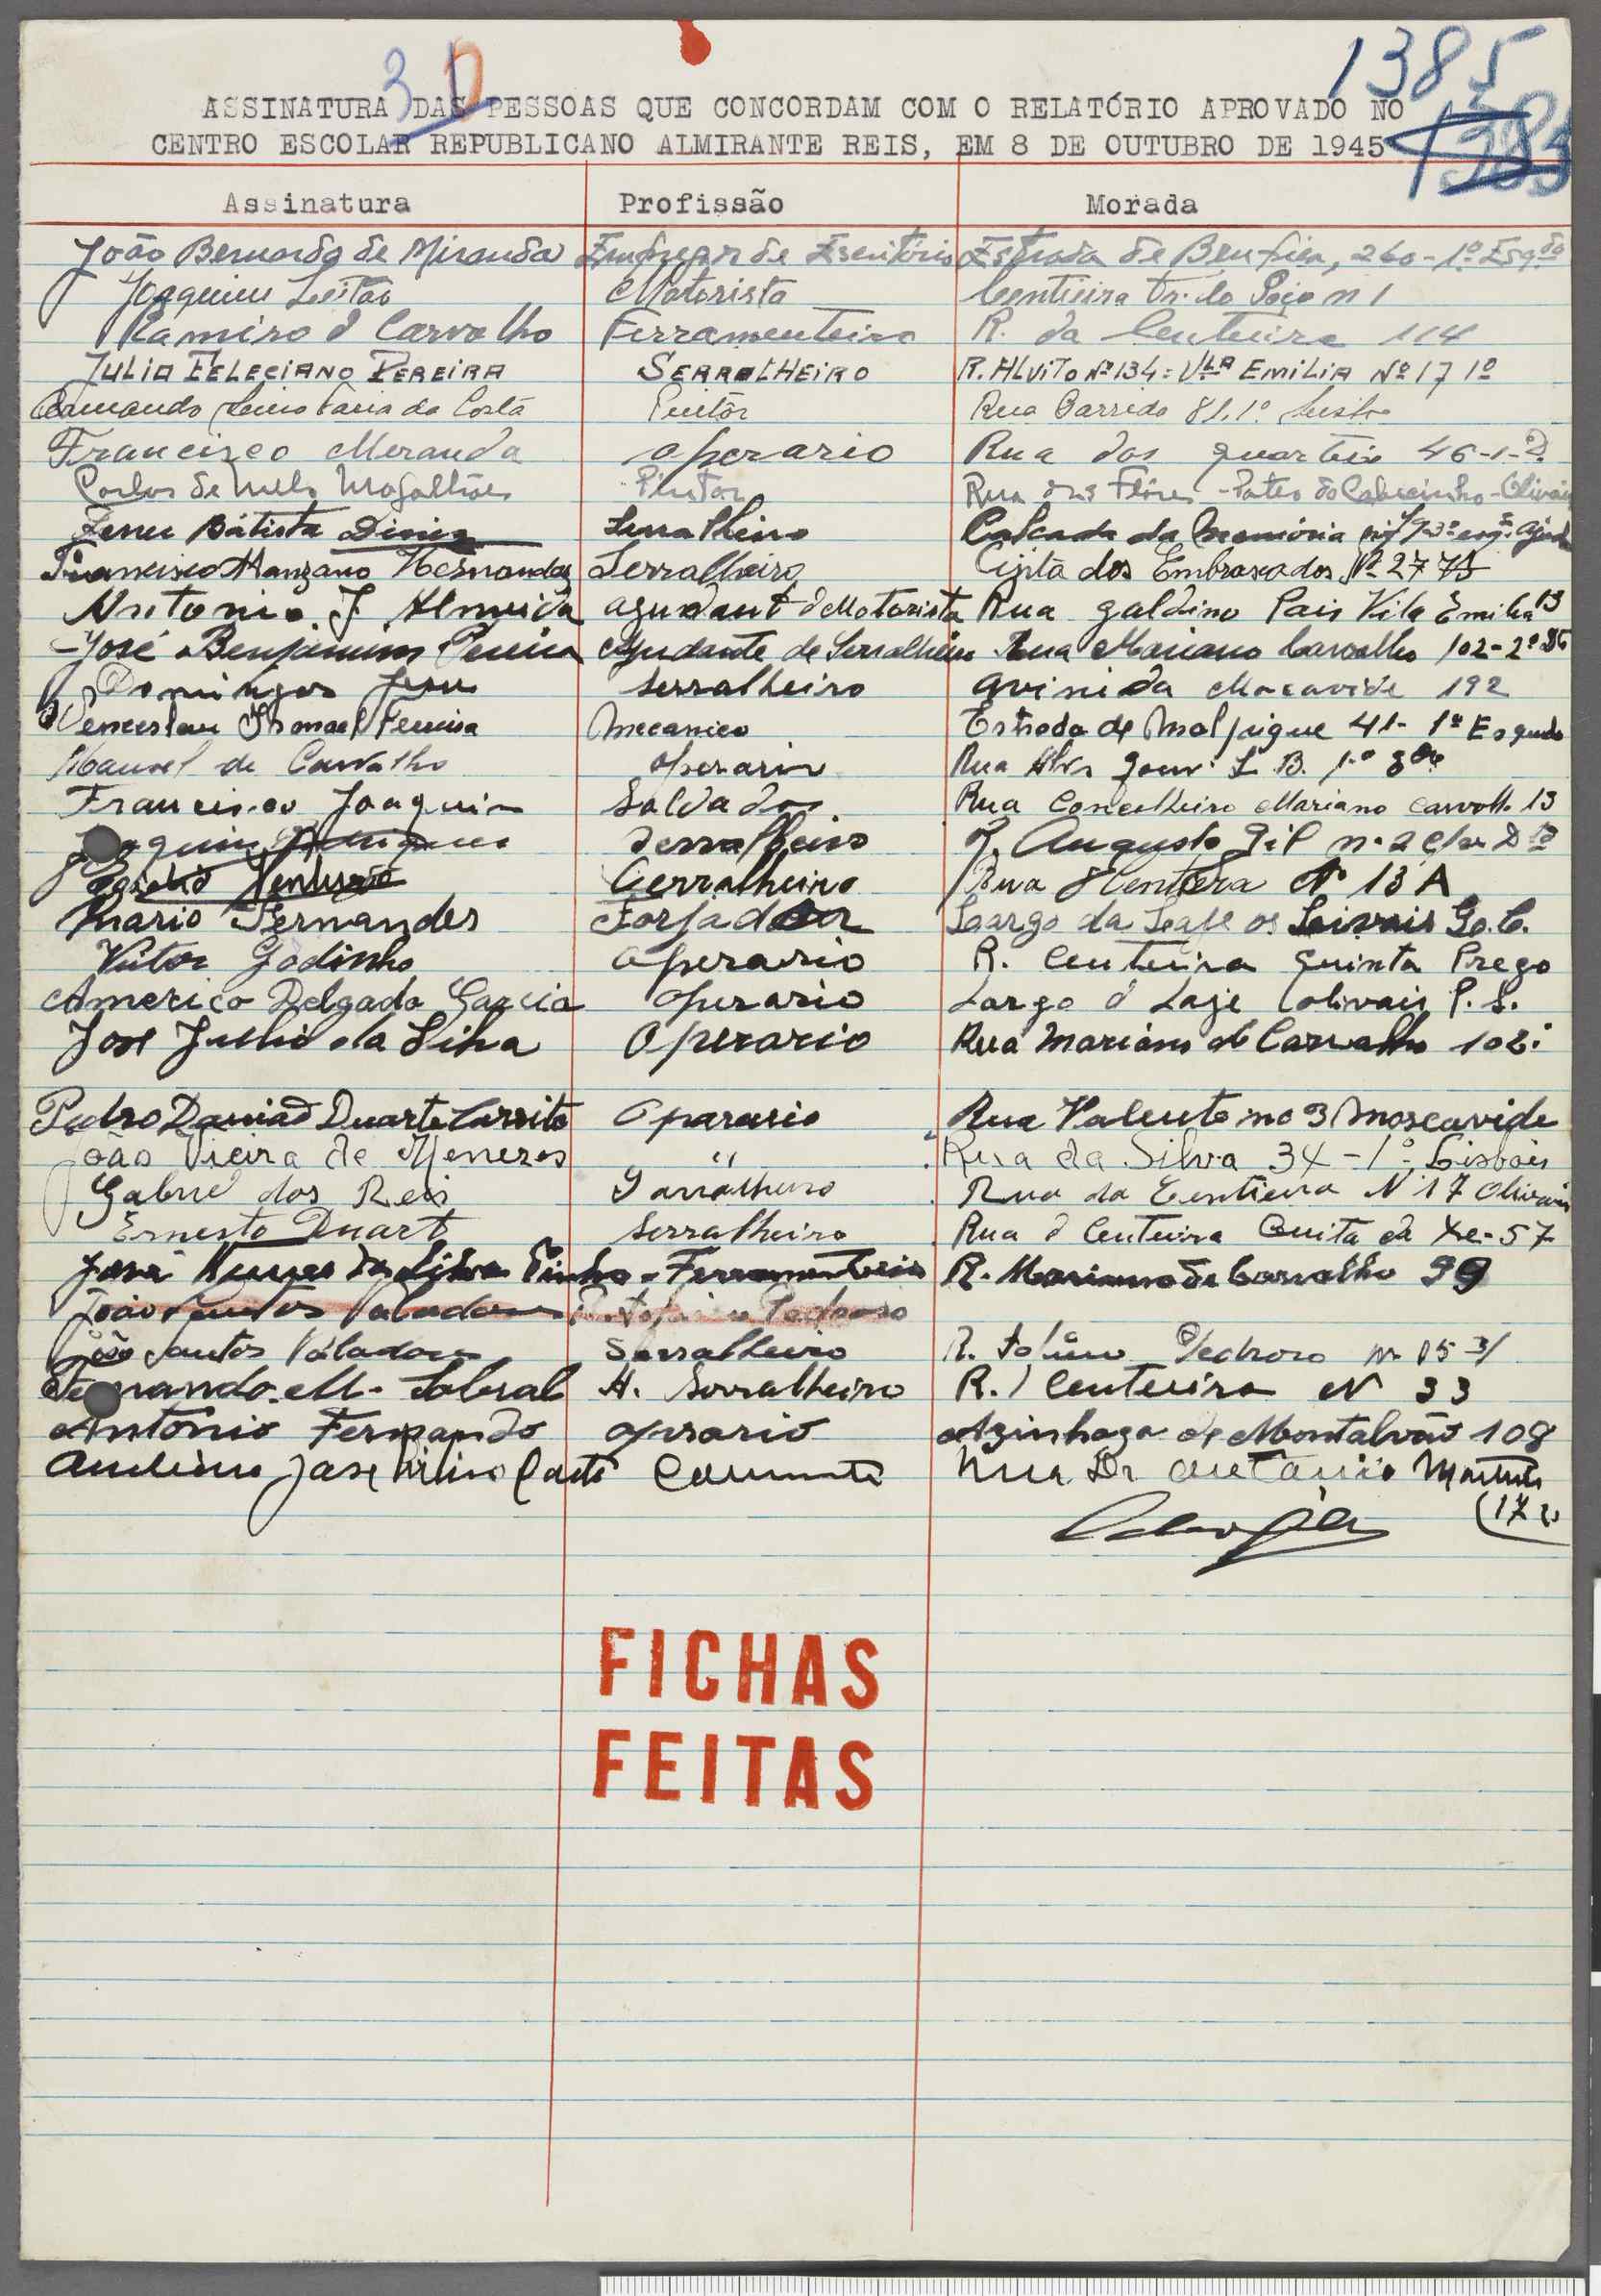 1385
3 D
ASSINATURA DAS PESSOAS QUE CONCORDAM COM O RELATÓRIO APROVADO NO
CENTRO ESCOLAR REPUBLICANO ALMIRANTE REIS, EM 8 DE OUTUBRO DE 1945
1385
Assinatura Profissão Morada
João Bernardo de Miranda Empregº de Escritório Estrada de Benfica, 260-1º Esqdo
Joaquim Leitão Motorista Centieira Tr. do Poço n 1
Ramiro d Carvalho Ferramenteiro R. da Centieira 114
JULIO FELECIANO PEREIRA SERRALHEIRO R. ALVITO Nº 134= VLA EMILIA Nº 17 1º
Armando Faria da Costa Pintôr Rua Garrido 81, 1º
Francisco Meranda operario Rua dos quarteis 46-1-D.
Carlos de Melo Magalhães Pintor Rua das Flôres - Pateo do Cabrinho - Olivais
Zeneu Batista Diniz Serralheiro Calçada da Memória
Francisco Manzano Hernandes Serralheiro Qinta dos Embrexados, Nº 27
Antonio J. Almeida agudant d Motorista Rua galdino Pais Vila Emilia 13
José Benjamim Pereira Ajudante de Serralheiro Rua Mariano Carvalho 102-2º Dt
Domingos Jesus serralheiro avinida Macavide 192
Venceslau Ismael Ferreira Mecanico Estrada de Malpique 41- 1º Esquedo
Manuel de Carvalho operario Rua L. B. 1º
Francisco Joaquim Soldador Rua Conselheiro Mariano Carvalho 13
Joaquim serralheiro R. Augusto Gil nº 2 Dto
Venturão Cerralheiro Rua Sentiera Nº 13 A
Mario Fernandes Forjador Largo da Laje os Loivais
Vitor Godinho operario R. Centieira Quinta Prego
Americo Delgado Garcia operario Largo d Laje Olivais P. S.
José Julio da Silva Operario Rua Mariano de Carvalho 102
Pedro Damião Duarte Carrito Oparario Rua Valente no 3 Moscavide
João Vieira de Menezes " Rua da Silva 34-1º Lisboa
Gabriel dos Reis Sarralheiro Rua da Centieira N 17 Olivais
Ernesto Duart serralheiro Rua d Centieira Quita da 57
José Nunes da Silva Pinho - Ferramenteiro R. Mariano de Carvalho 99
João Santos Valadares
João Santos Valadares Serralheiro R. Pedroso
Fernando M. Sobral A. Serralheiro R. Centieira N 33
António Fernando oprario Azinhaga de Montalvão 108
José Rua Dr Antonio Martins
(17
FICHAS
FEITAS